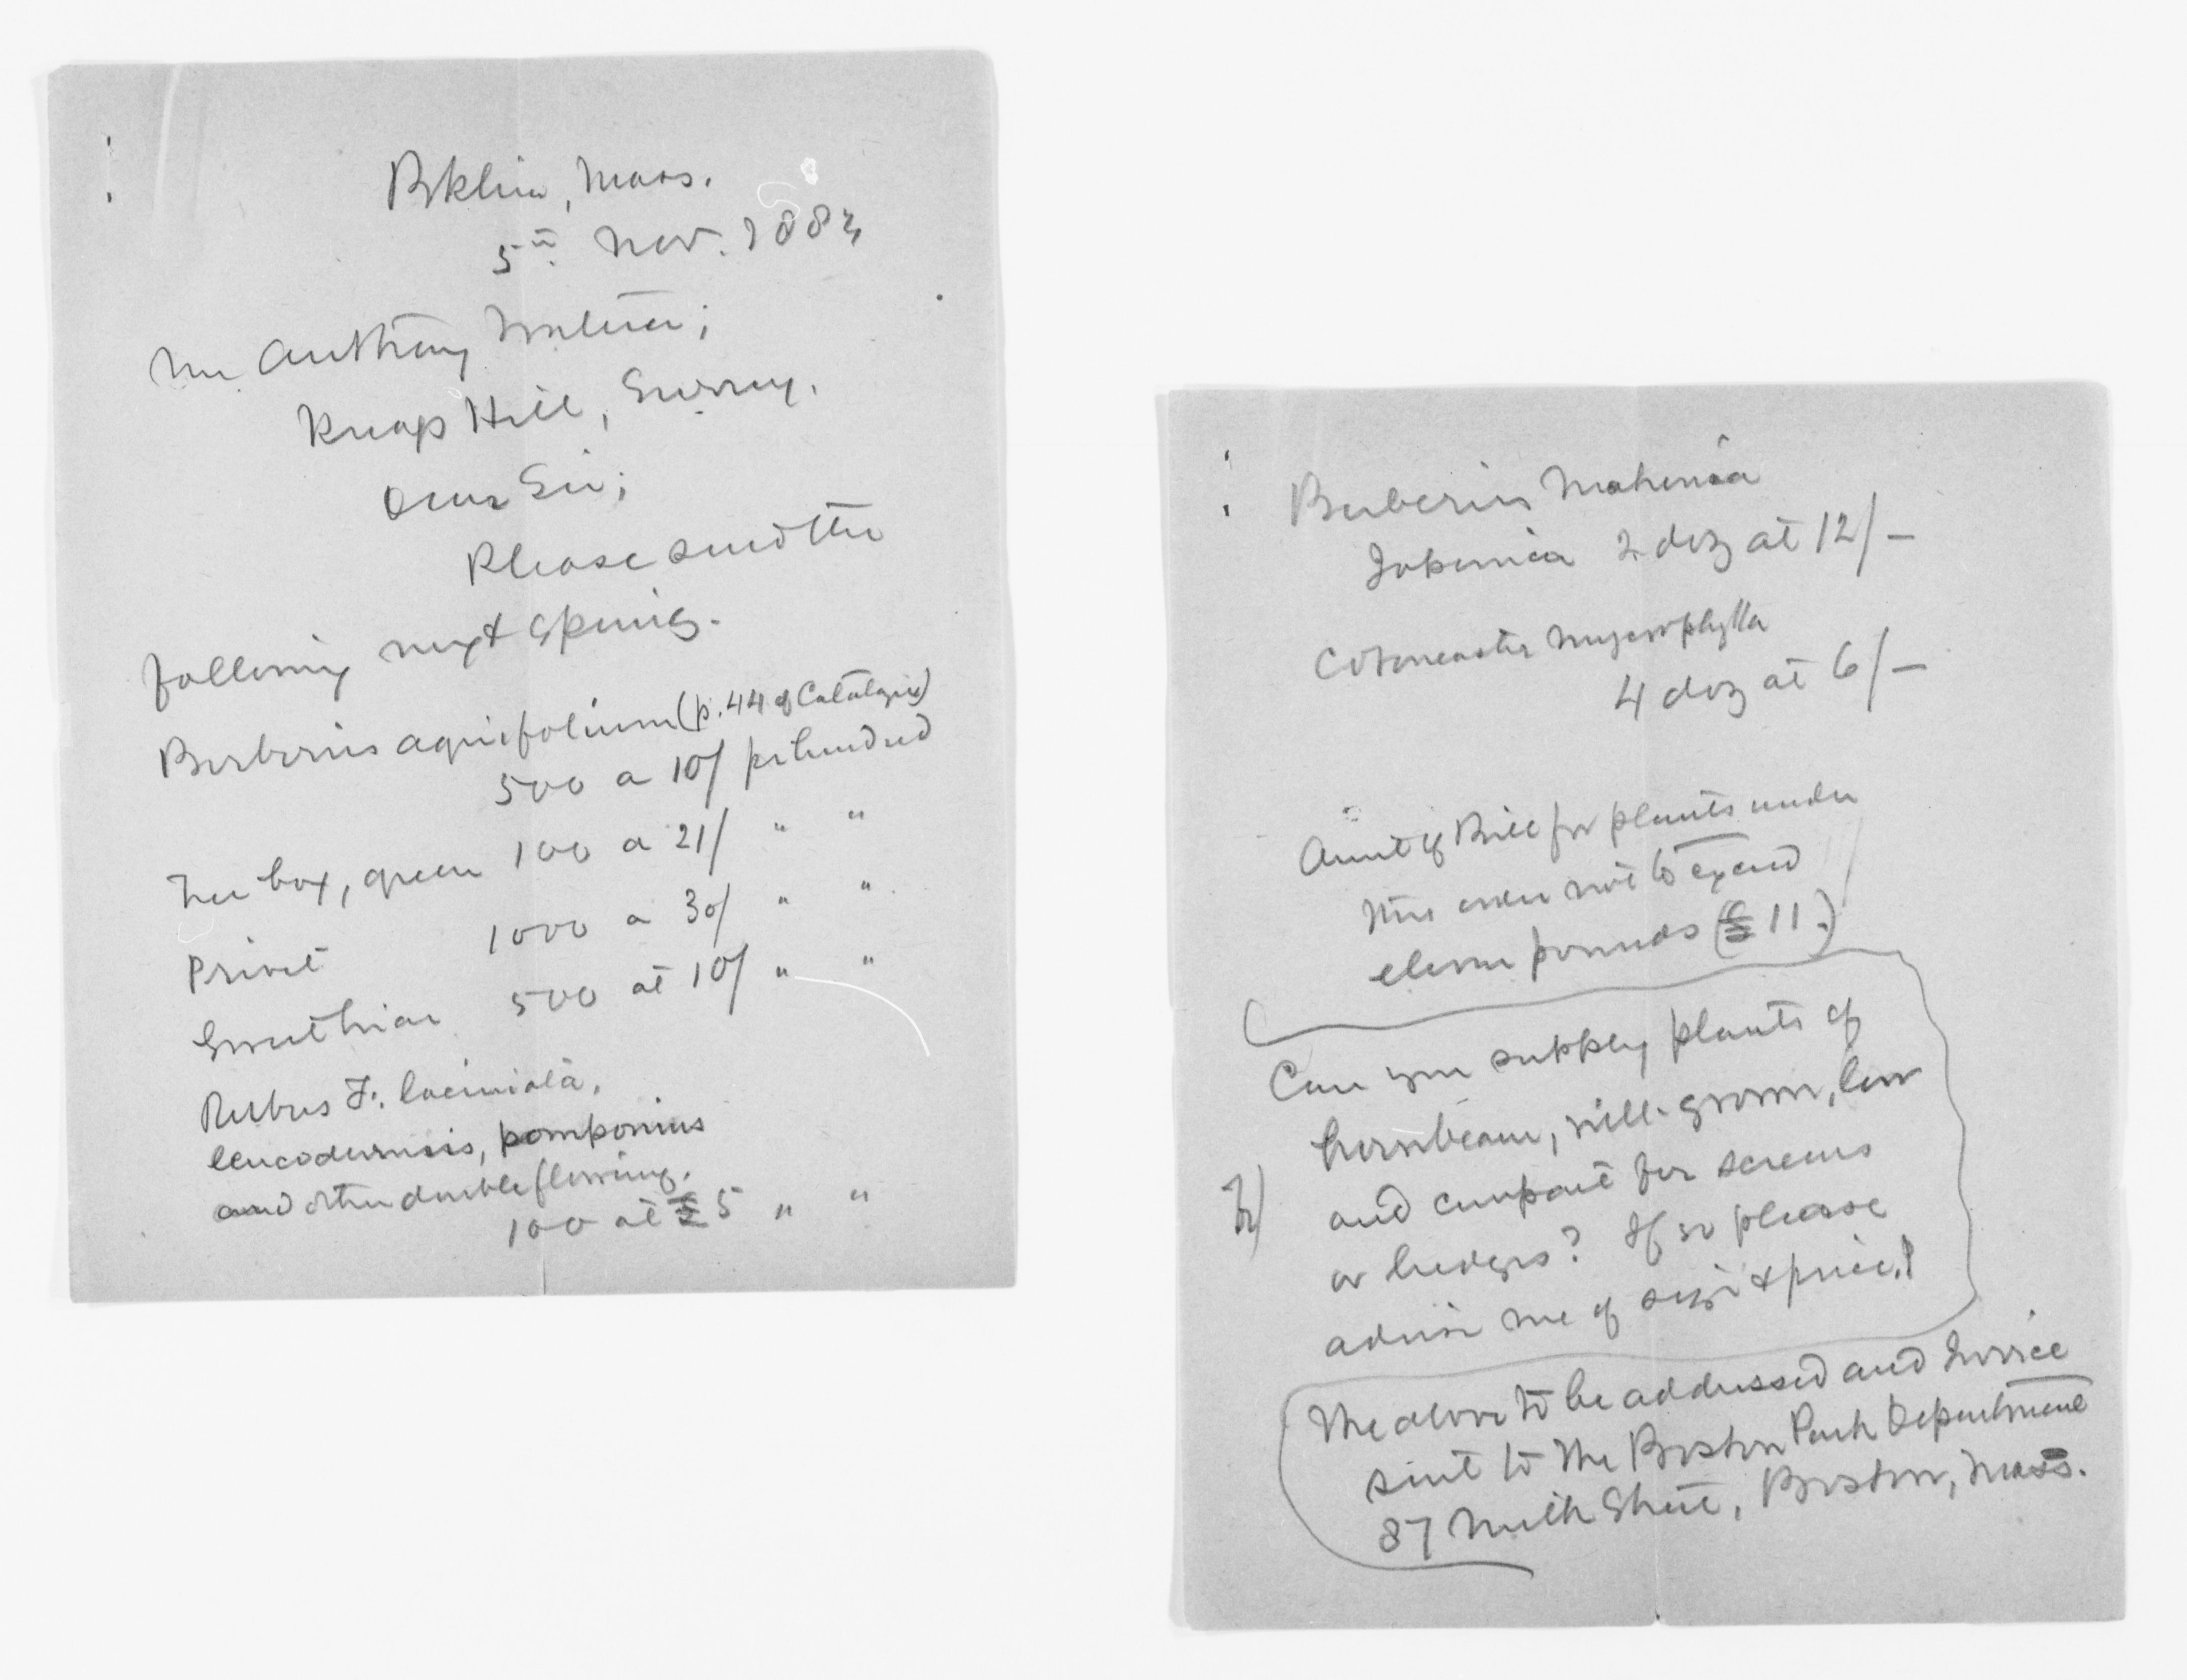 Bkline, Mass.
5th Nov. 1883
Mr Anthony Waterer;
Knap Hill, Surrey.
Dear Sir;
Please send the
following next spring.
Berberis aquifolium (p. 44 of Catalogue)
500 a 10/ per hundred
Tree box, green 100 a 21/ " "
Privet 1000 a 30/ " "
Sweetbriar 500 at 10/ " "
Rubus F. laciniata,
leucodermis, pomponius
and other double flowering.
100 at £5 " "
Berberis Mahonia
Japonica 2 doz at 12/-
Cotoneaster Microphylla
4 doz at 6/-
Amnt of Bill for plants under
this order not to exceed
eleven pounds (£11.)
Can you supply plants of
hornbeam, well-grown, low
and compact for screens
or hedges? If so please
advise me of size & price.
The above to be addressed and Invoice
sent to the Boston Park Department
87 Milk Street, Boston, Mass.